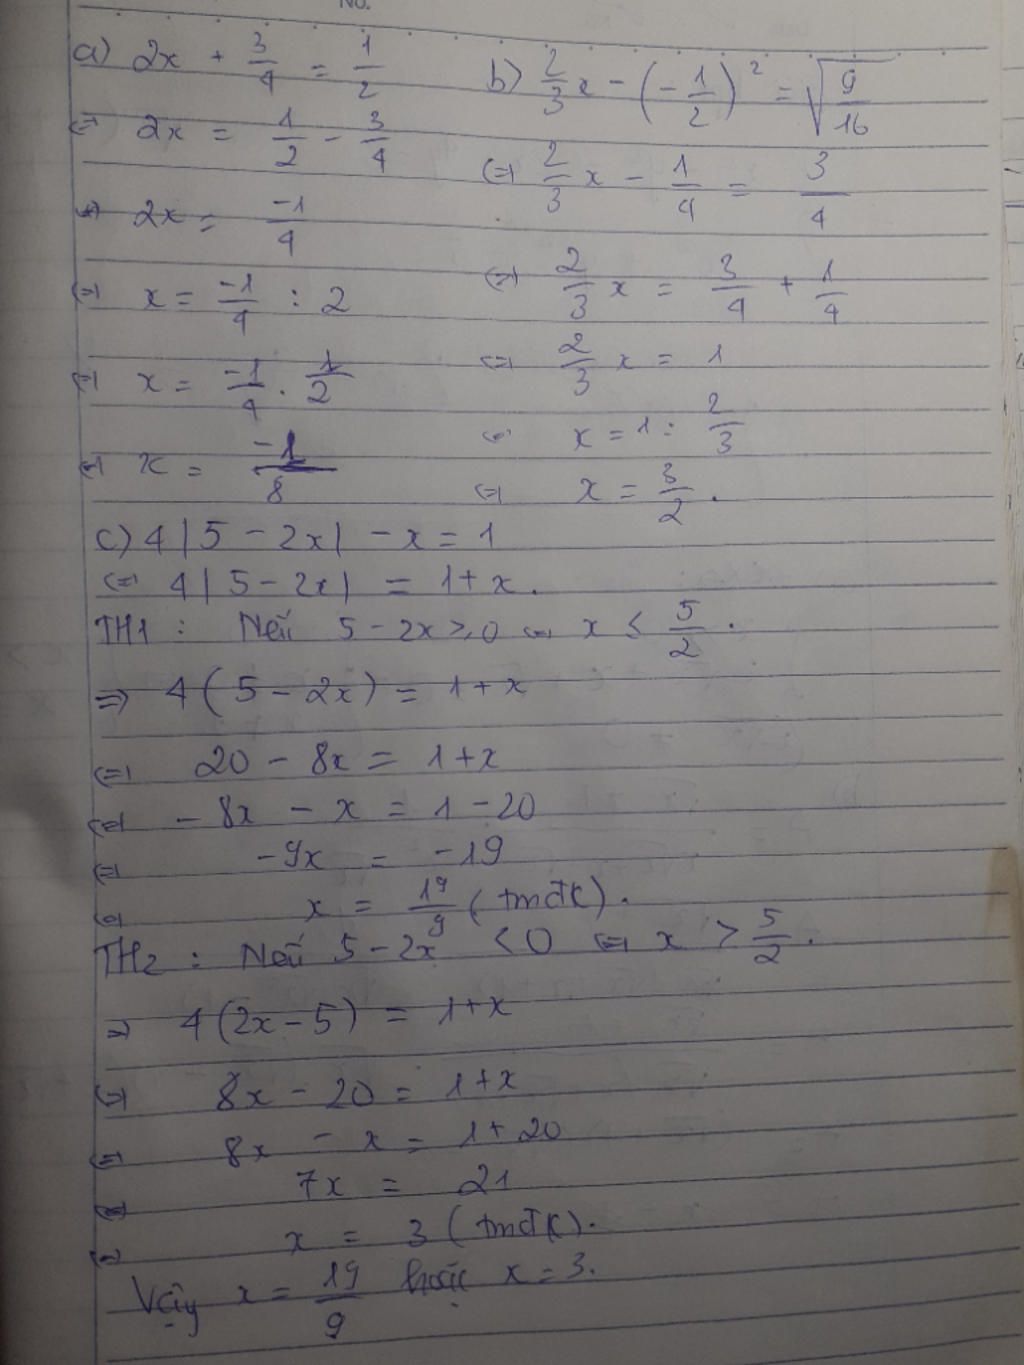 No.
a) 2x + 3/4 = 1/2
⇔ 2x = 1/2 - 3/4
⇔ 2x = -1/4
⇔ x = -1/4 : 2
⇔ x = -1/4 . 1/2
⇔ x = -1/8
b) 2/3 x - (-1/2)² = √(9/16)
⇔ 2/3 x - 1/4 = 3/4
⇔ 2/3 x = 3/4 + 1/4
⇔ 2/3 x = 1
⇔ x = 1 : 2/3
⇔ x = 3/2 .
c) 4|5 - 2x| - x = 1
⇔ 4|5 - 2x| = 1 + x .
TH1 : Nếu 5 - 2x ≥ 0 ⇔ x ≤ 5/2 .
⇒ 4(5 - 2x) = 1 + x
⇔ 20 - 8x = 1 + x
⇔ - 8x - x = 1 - 20
⇔ -9x = -19
⇔ x = 19/9 (tmđk).
TH2 : Nếu 5 - 2x < 0 ⇔ x > 5/2 .
⇒ 4(2x - 5) = 1 + x
⇔ 8x - 20 = 1 + x
⇔ 8x - x = 1 + 20
⇔ 7x = 21
⇔ x = 3 (tmđk).
Vậy x = 19/9 hoặc x = 3.